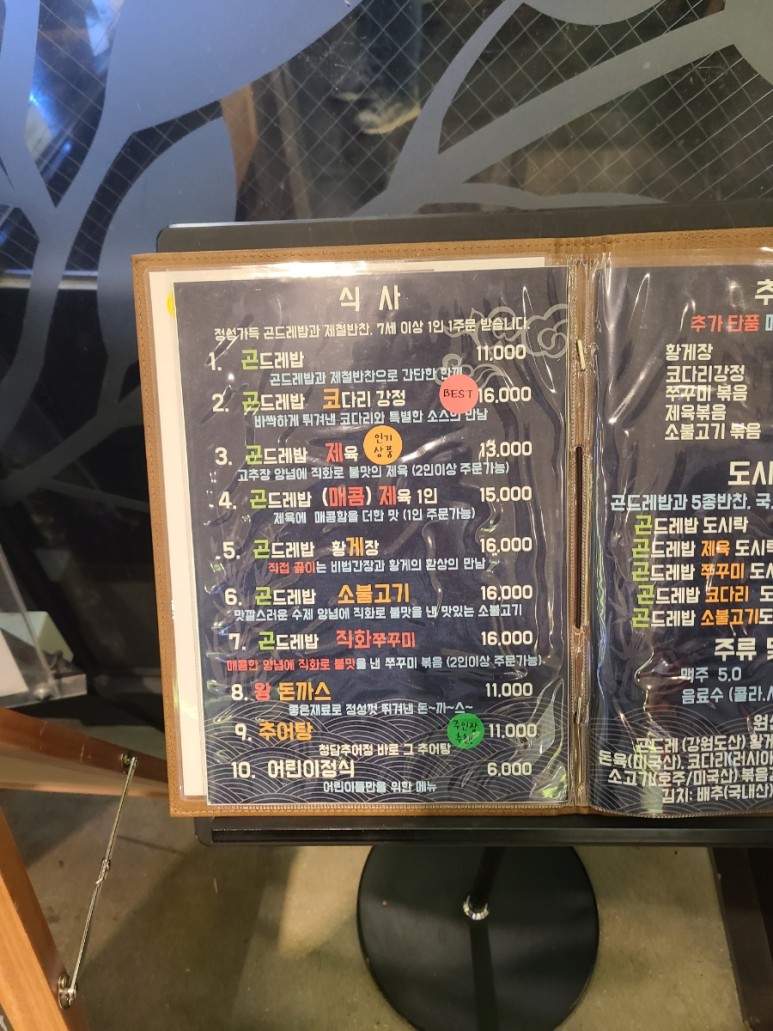 식 사
정성가득 곤드레밥과 제철반찬. 7세 이상 1인 1주문 받습니다.
1. 곤드레밥 11,000
곤드레밥과 제철반찬으로 간단한 한끼
2. 곤드레밥 코다리 강정 BEST 16,000
바싹하게 튀겨낸 코다리와 특별한 소스의 만남
3. 곤드레밥 제육 인기상품 13,000
고추장 양념에 직화로 불맛의 제육 (2인이상 주문가능)
4. 곤드레밥 (매콤) 제육 1인 15,000
제육에 매콤함을 더한 맛 (1인 주문가능)
5. 곤드레밥 황게장 16,000
직접 끓이는 비법간장과 황게의 환상의 만남
6. 곤드레밥 소불고기 16,000
맛깔스러운 수제 양념에 직화로 불맛을 낸 맛있는 소불고기
7. 곤드레밥 직화쭈꾸미 16,000
매콤한 양념에 직화로 불맛을 낸 쭈꾸미 볶음 (2인이상 주문가능)
8. 왕 돈까스 11,000
좋은재료로 정성껏 튀겨낸 돈~까~스~
9. 추어탕 주인장 추천 11,000
청담추어정 바로 그 추어탕
10. 어린이정식 6,000
어린이들만을 위한 메뉴
추가 단품
황게장
코다리강정
쭈꾸미 볶음
제육볶음
소불고기 볶음
곤드레밥과 5종반찬.
곤드레밥 도시락
곤드레밥 제육 도시락
곤드레밥 쭈꾸미
곤드레밥 코다리
곤드레밥 소불고기
주류
맥주 5.0
음료수 (콜라.
곤드레 (강원도산)
돈육(미국산), 코다리(러시아
소고기(호주/미국산) 볶음
김치: 배추(국내산)